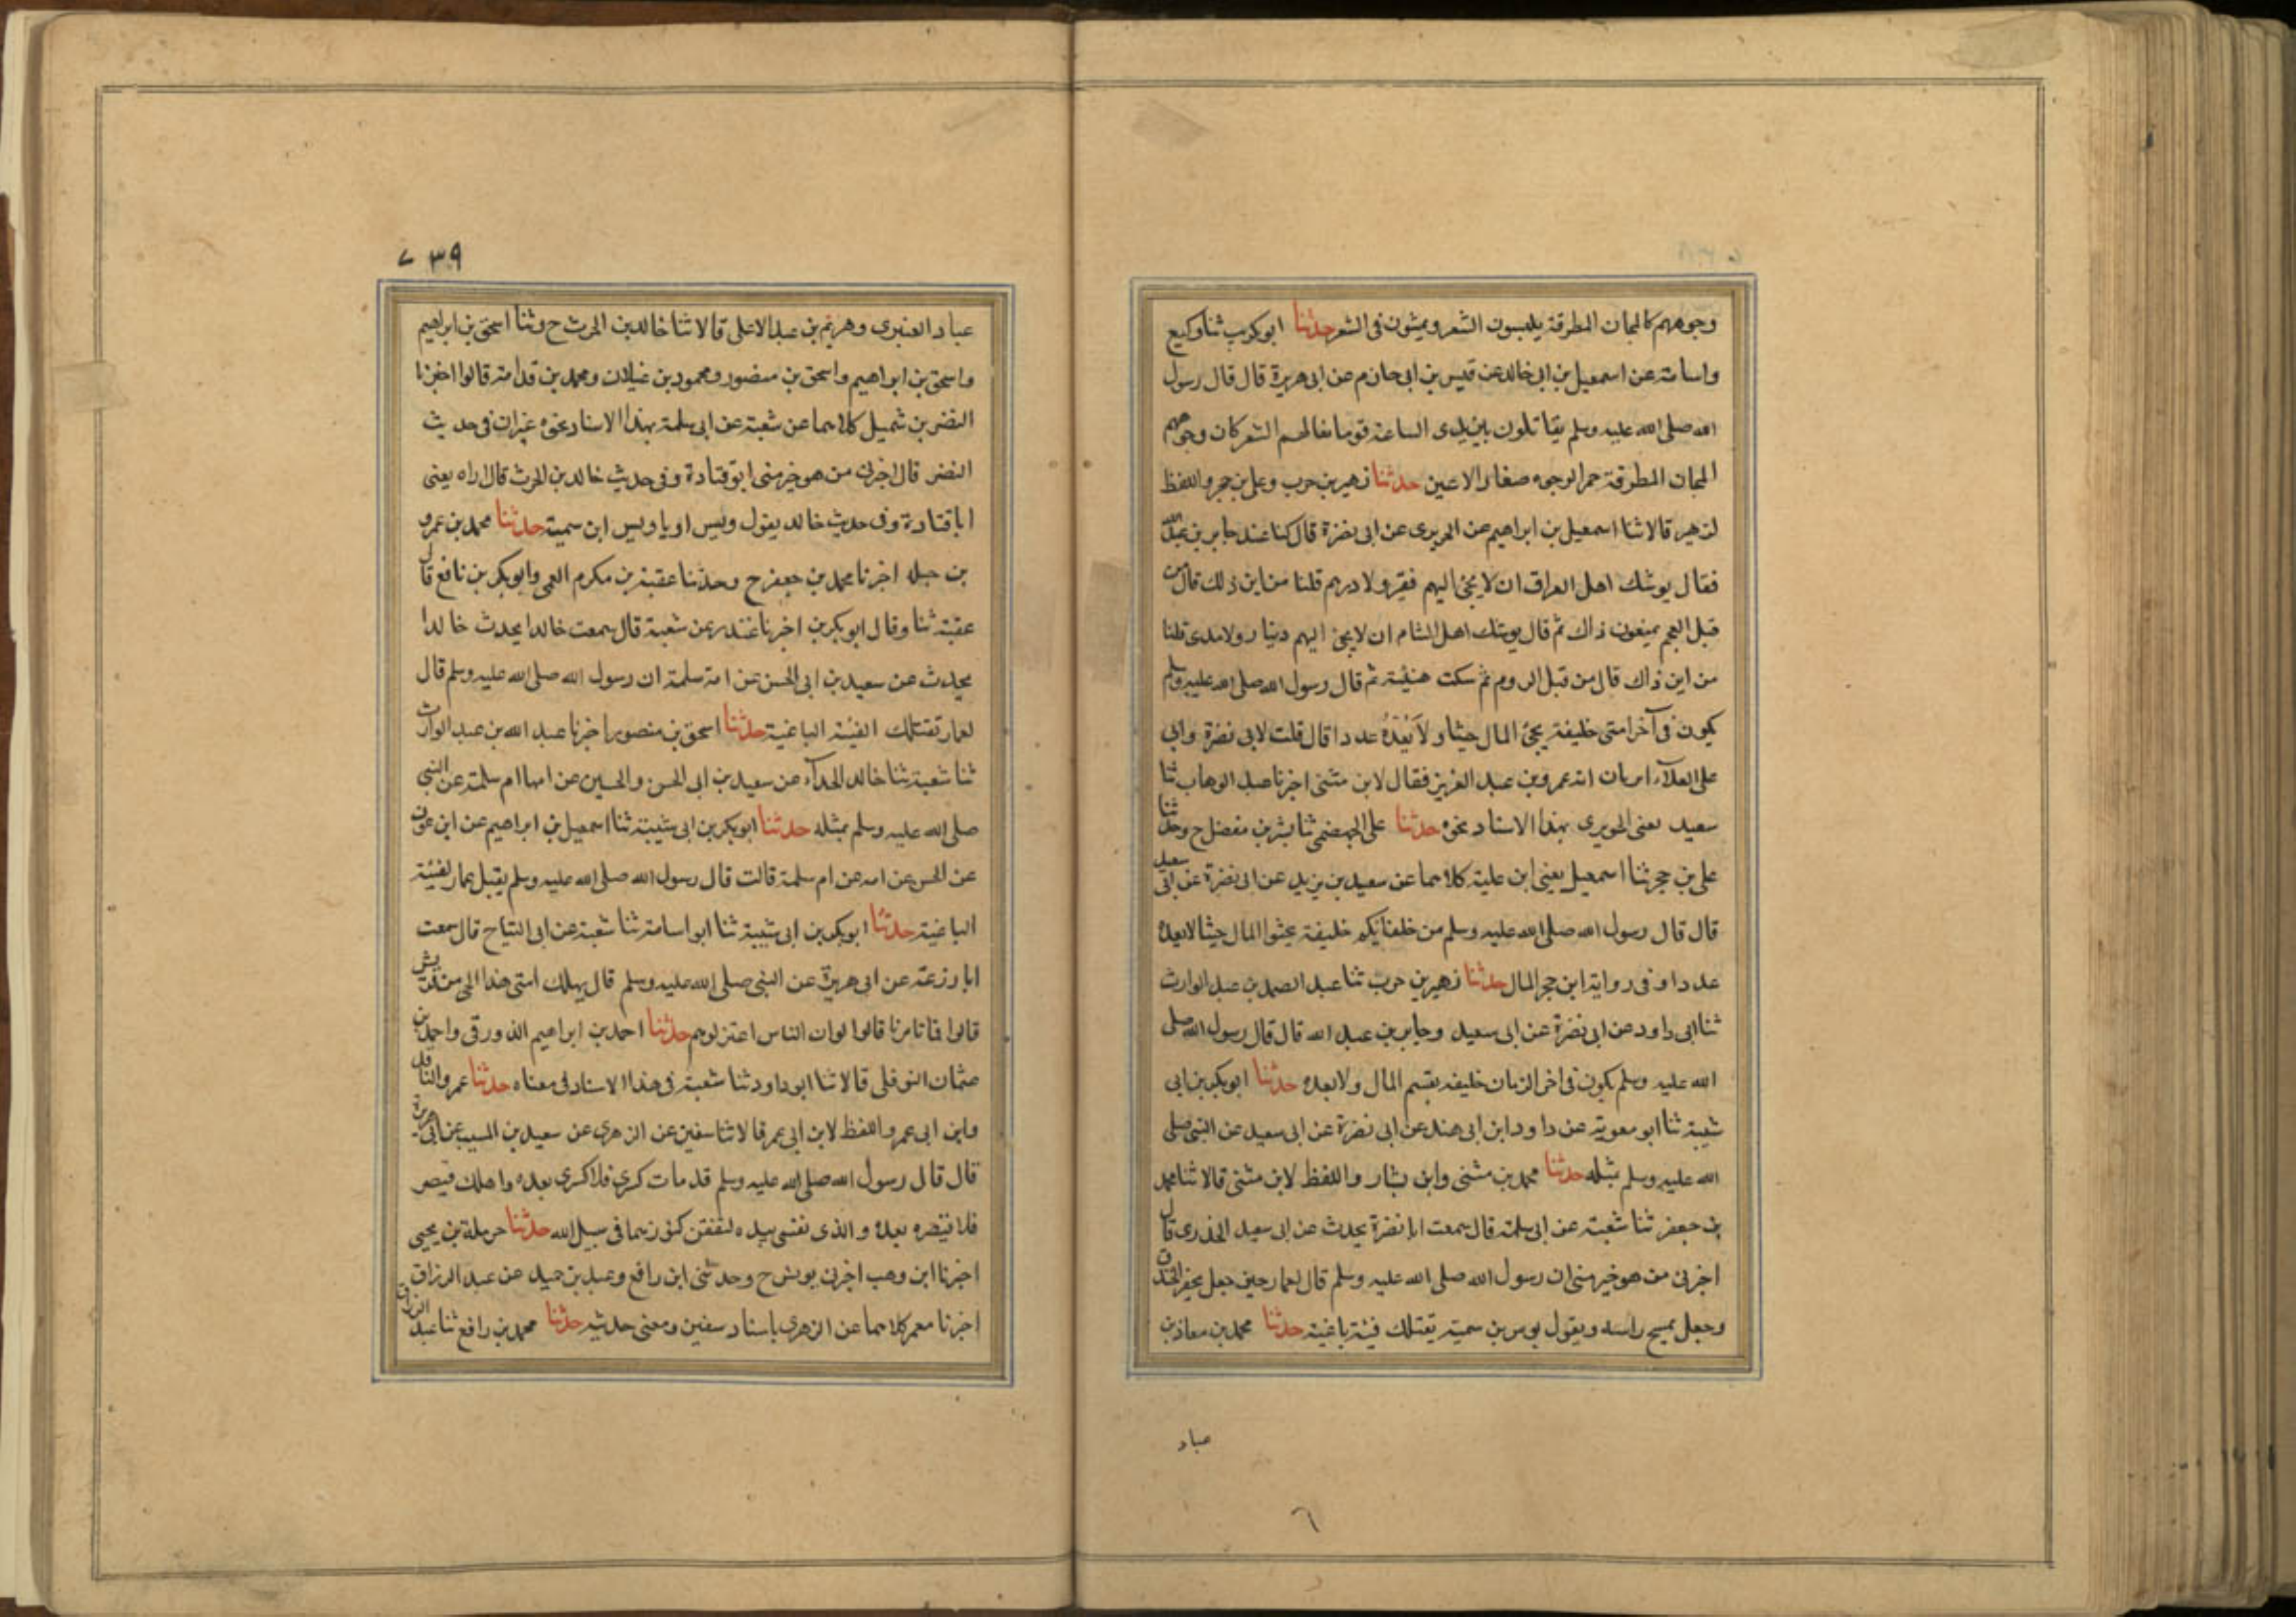 وجوههم كالمجان المطرقة يلبسون الشعر ويمشون فى الشعر حدثنا ابو كريب ثنا وكيع
واسامة عن اسمعيل بن ابى خالد عن قيس بن ابى حازم عن ابى هريرة قال قال رسول
الله صلى الله عليه وسلم يقاتلون بين يدى الساعة قوما نعالهم الشعر كان وجوههم
المجان المطرقة حمر الوجوه صغار الاعين حدثنا زهير بن حرب وعلى بن حجر واللفظ
لزهير قالا ثنا اسمعيل بن ابراهيم عن الجريرى عن ابى نضرة قال كنا عند جابر بن عبد الله
فقال يوشك اهل العراق ان لا يجئ اليهم قفيز ولا درهم قلنا من اين ذلك قال من
قبل العجم يمنعون ذاك ثم قال يوشك اهل الشام ان لا يجئ اليهم دينار ولا مدى قلنا
من اين ذاك قال من قبل الروم ثم سكت هنيئة ثم قال رسول الله صلى الله عليه وسلم
يكون فى آخر امتى خليفة يجئ المال حيثا ولا يعده عددا قال قلت لابى نضرة وابى
على العلآء اتريان انه عمرو بن عبد العزيز فقال لا بن مثنى اخبرنا عبد الوهاب ثنا
سعيد يعنى الجويرى بهذا الاسناد نحوه حدثنا على الجهضمى ثنا بشر بن مفضل ح وحدثنا
على بن حجر ثنا اسمعيل يعنى ابن علية كلاهما عن سعيد بن يزيد عن ابى نضرة عن ابى سعيد
قال قال رسول الله صلى الله عليه وسلم من خلفائكم خليفة يحثوا المال حيثا لا يعده
عددا وفى رواية ابن حجر المال حدثنا زهير بن حرب ثنا عبد الصمد بن عبد الوارث
ثنا ابى داود عن ابى نضرة عن ابى سعيد وجابر بن عبد الله قال قال رسول الله صلى
الله عليه وسلم يكون فى اخر الزمان خليفه يقسم المال ولا يعده حدثنا ابو بكر بن ابى
شيبة ثنا ابو معوية عن داود ابن ابى هند عن ابى نضرة عن ابى سعيد عن النبى صلى
الله عليه وسلم بمثله حدثنا محمد بن مثنى وابن بشار واللفظ لابن مثنى قالا ثنا محمد
بن جعفر ثنا شعبة عن ابى سلمة قال سمعت ابا نضرة يحدث عن ابى سعيد الخدرى قال
اخبرنى من هو خير منى ان رسول الله صلى الله عليه وسلم قال لعمار حين جعل يحفر الخندق
وجعل يمسح راسه ويقول بوس بن سمية يقتلك فئة باغية حدثنا محمد بن معاذ بن
عباد
٦
٧٣٩
عباد العنبرى وهريم بن عبد الاعلى قالا ثنا خالد بن الحرث ح وثنا اسحق بن ابراهيم
واسحق بن ابراهيم واسحق بن منصور ومحمود بن غيلان ومحمد بن قدامة قالوا اخبرنا
النضر بن شميل كلاهما عن شعبة عن ابى سلمة بهذا الاسناد نحوه غير ان فى حديث
النضر قال اخبرنى من هو خير منى ابو قتادة وفى حديث خالد بن الحرث قال اراه يعنى
ابا قتادة وفى حديث خالد يقول ويس او يا ويس ابن سمية حدثنا محمد بن عمرو
بن جبله اخبرنا محمد بن جعفر ح وحدثنا عقبة بن مكرم العمى وابو بكر بن نافع قال
عقبة ثنا وقال ابو بكر بن اخبرنا غندر عن شعبة قال سمعت خالدا يحدث خالدا
يحدث عن سعيد بن ابى الحسن عن امة سلمة ان رسول الله صلى الله عليه وسلم قال
لعمار تقتلك الفئية الباغية حدثنا اسحق بن منصور اخبرنا عبد الله بن عبد الوارث
ثنا شعبة ثنا خالد الحذآء عن سعيد بن ابى الحسن والحسين عن امها ام سلمة عن النبى
صلى الله عليه وسلم بمثله حدثنا ابو بكر بن ابى شيبة ثنا اسمعيل بن ابراهيم عن ابن عون
عن الحسن عن امه عن ام سلمة قالت قال رسول الله صلى الله عليه وسلم يقبل عمار لفئية
الباغية حدثنا ابو بكر بن ابى شيبة ثنا ابو اسامة ثنا شعبة عن ابى التياح قال سمعت
ابا وزعة عن ابى هريرة عن النبى صلى الله عليه وسلم قال يهلك امتى هذا الحى من قريش
قالوا فما تامرنا قالوا لو ان الناس اعتزلوهم حدثنا احمد بن ابراهيم الذورقى واحمد بن
عثمان النوفلى قالا ثنا ابو داود ثنا شعبة فى هذا الاسناد فى معناه حدثنا عمرو الناقد
وابن ابى عمر واللفظ لابن ابى عمر قالا ثنا سفين عن الزهرى عن سعيد بن المسيب عن ابى هريرة
قال قال رسول الله صلى الله عليه وسلم قد مات كسرى فلا كسرى بعده واهلك قيصر
فلا قيصره بعده والذى نفسى بيده لتنفقن كنوزهما فى سبيل الله حدثنا حرملة بن يحيى
اخبرنا ابن وهب اخبرنى يونس ح وحدثنى ابن رافع وعبد بن حميد عن عبد الرزاق
اخبرنا معمر كلاهما عن الزهرى باسناد سفين ومعنى حديثه حدثنا محمد بن رافع ثنا عبد الرزاق